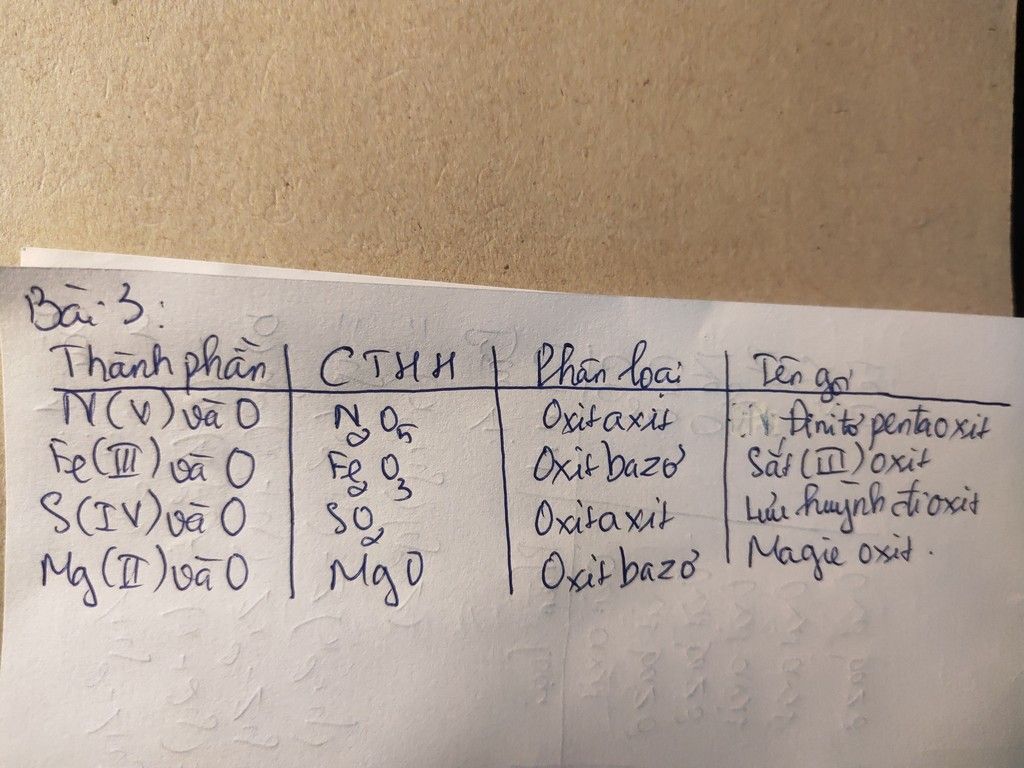 Bài 3:
Thành phần | CTHH | Phân loại | Tên gọi
N(V) và O | N2O5 | Oxit axit | Đinitơ pentaoxit
Fe(III) và O | Fe2O3 | Oxit bazơ | Sắt (III) oxit
S(IV) và O | SO2 | Oxit axit | Lưu huỳnh đioxit
Mg(II) và O | MgO | Oxit bazơ | Magie oxit.